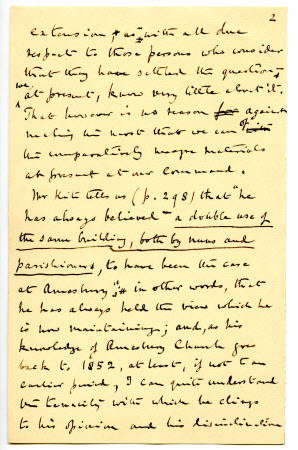 2
extension; as, with all due
respect to those persons who consider
that they have settled the question,
we, at present, know very little about it.
That however is no reason for against
making the most that we can of with
the comparatively meagre materials
at present at our command.
Mr Kite tells us (p. 298) that "he
has always believed a double use of
the same building, both by nuns and
parishioners, to have been the case
at Amesbury"; in other words, that
he has always held the view which he
is now maintaining; and, as his
knowledge of Amesbury Church goes
back to 1852, at least, if not to an
earlier period, I can quite understand
the tenacity with which he clings
to his opinion and his disinclination